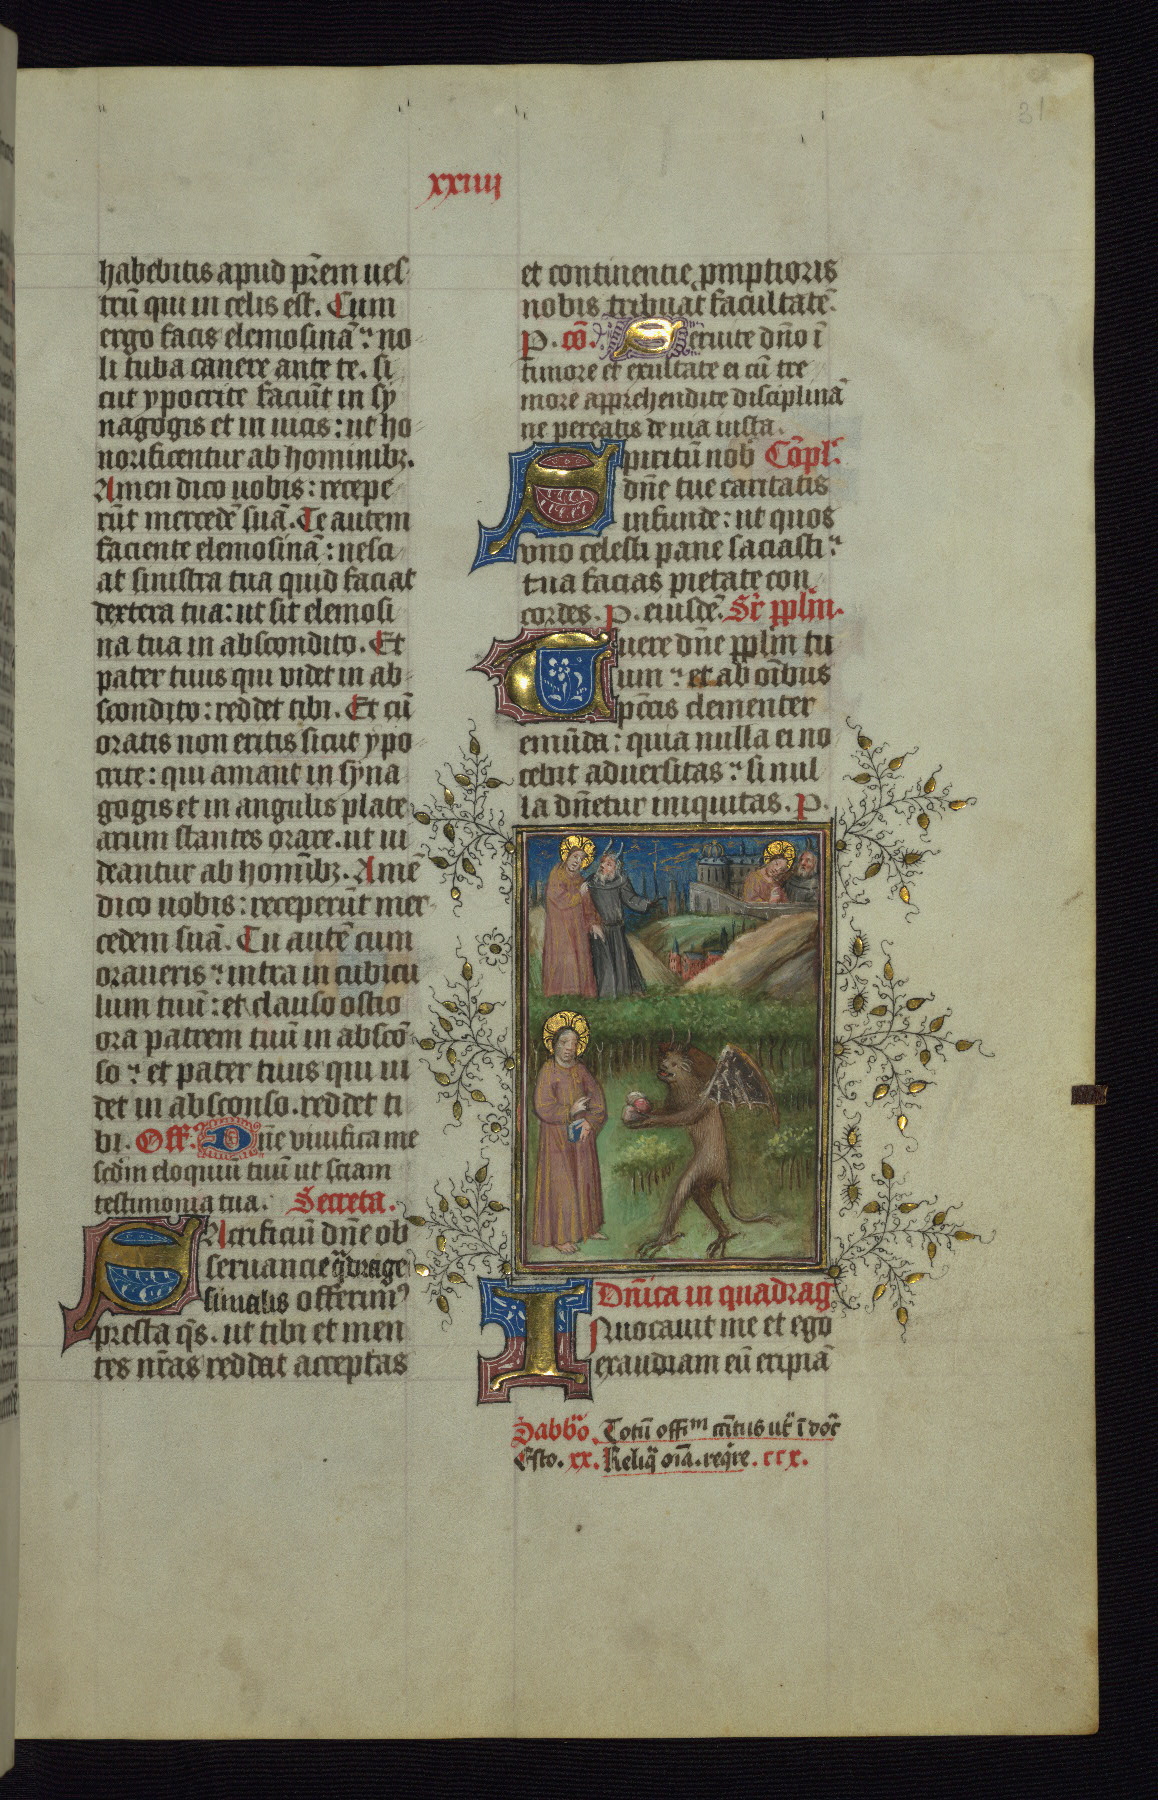 31
xxiiij
habebitis apud pr̄em ues
trū qui in celis est. Cum
ergo facis elemosinā: no
li tuba canere ante te. si
cut ypocrite faciūt in sy
nagogis et in uicis: ut ho
norificentur ab hominibꝫ.
Amen dico uobis: recepe
rūt mercedē suā. Te autem
faciente elemosinā: nesci
at sinistra tua quid faciat
dextera tua: ut sit elemosi
na tua in abscondito. Et
pater tuus qui videt in ab
scondito: reddet tibi. Et cū
oratis non eritis sicut ypo
crite: qui amant in syna
gogis et in angulis plate
arum stantes orare. ut ui
deantur ab hominibꝫ. Amē
dico uobis: receperūt mer
cedem suā. Tu autē cum
oraueris: intra in cubicu
lum tuū: et clauso ostio
ora patrem tuū in absco̅
so: et pater tuus qui ui
det in absconso. reddet ti
bi. Off. Dn̄e viuifica me
scd̄m eloquiū tuū ut sciam
testimonia tua. Secreta.
Sacrificiū dn̄e ob
seruancie q̄drage
simalis offerimꝰ
presta q̄s. ut tibi et men
tes nr̄as reddat acceptas
et continentie ꝓmptioris
nobis tribuat facultatē.
P. cō. Seruite dn̄o ī
timore et exultate ei cū tre
more apprehendite disciplinā
ne pereatis de uia iusta.
Spiritū nob̄ Cōpl.
dn̄e tue caritatis
infunde: ut quos
vno celesti pane saciasti:
tua facias pietate con
cordes. P. eiusdē. Sr̄ ppl̄m.
Tuere dn̄e ppl̄m tu
um: et ab oībus
pc̄cis clementer
emūda: quia nulla ei no
cebit aduersitas: si nul
la dn̄etur iniquitas. P.
Dn̄ica in quadraḡ
Inuocauit me et ego
exaudiam eū eripiā
Sabb̄o. Totū offiᵐ cātus ut̄ ī doc̄
Esto. xx. Reliq̄ oīa. reqͥre. ccx.